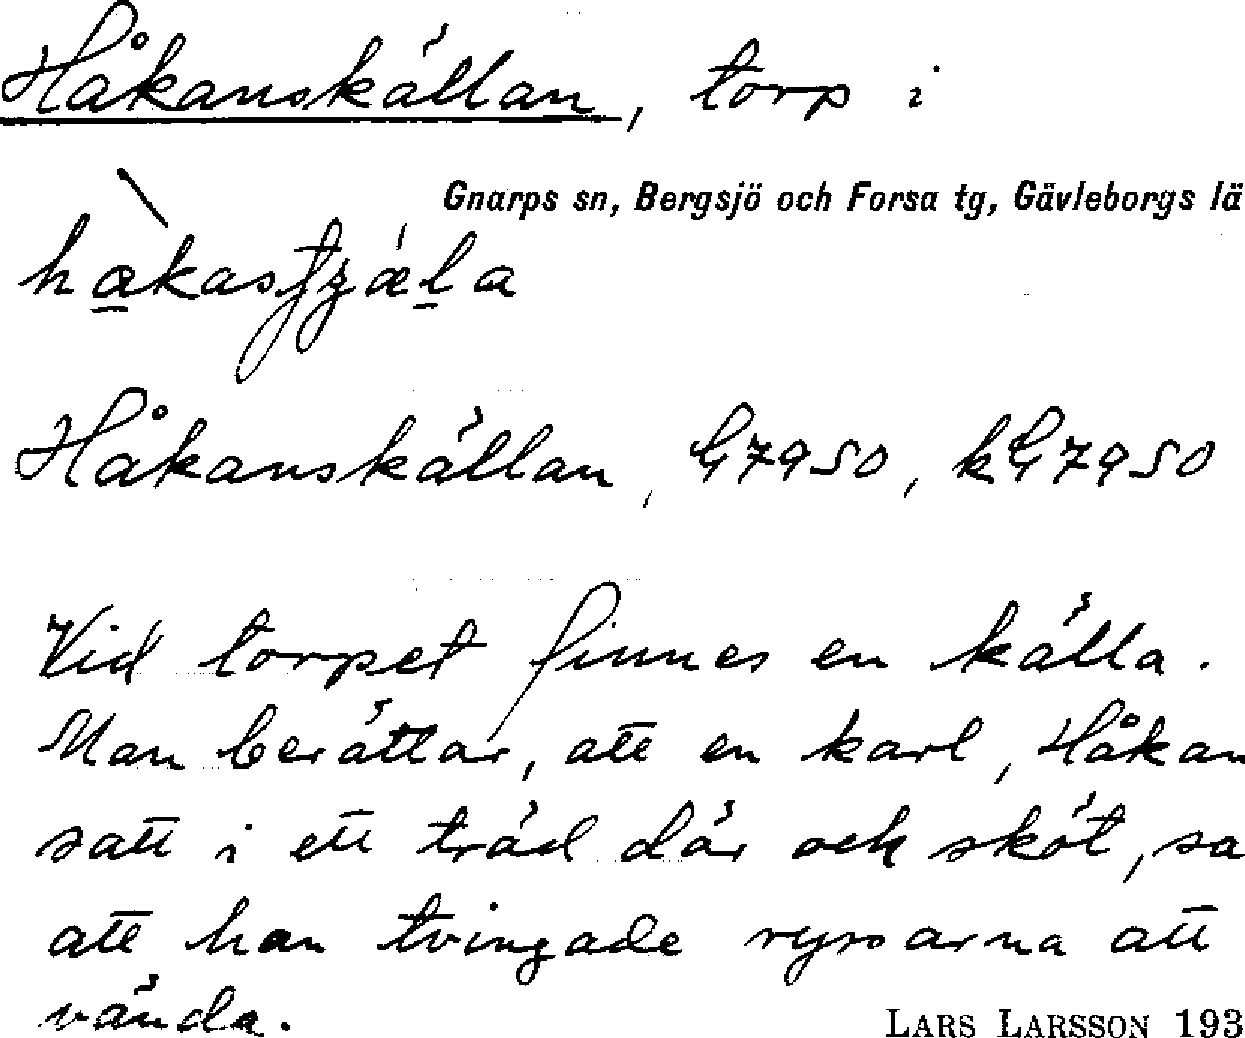 Håkanskällan, torp i
Gnarps sn, Bergsjö och Forsa tg, Gävleborgs lä
Håkanskällan, G7950, kG7950
Vid torpet finnes en källa.
Man berättar, att en karl, Håkan
satt i ett träd där och sköt, sa
att han tvingade ryssarna att
vända.
LARS LARSSON 193